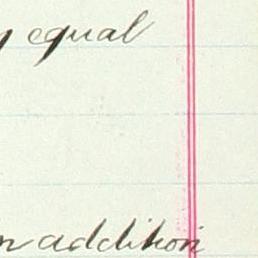 y equal
n addition